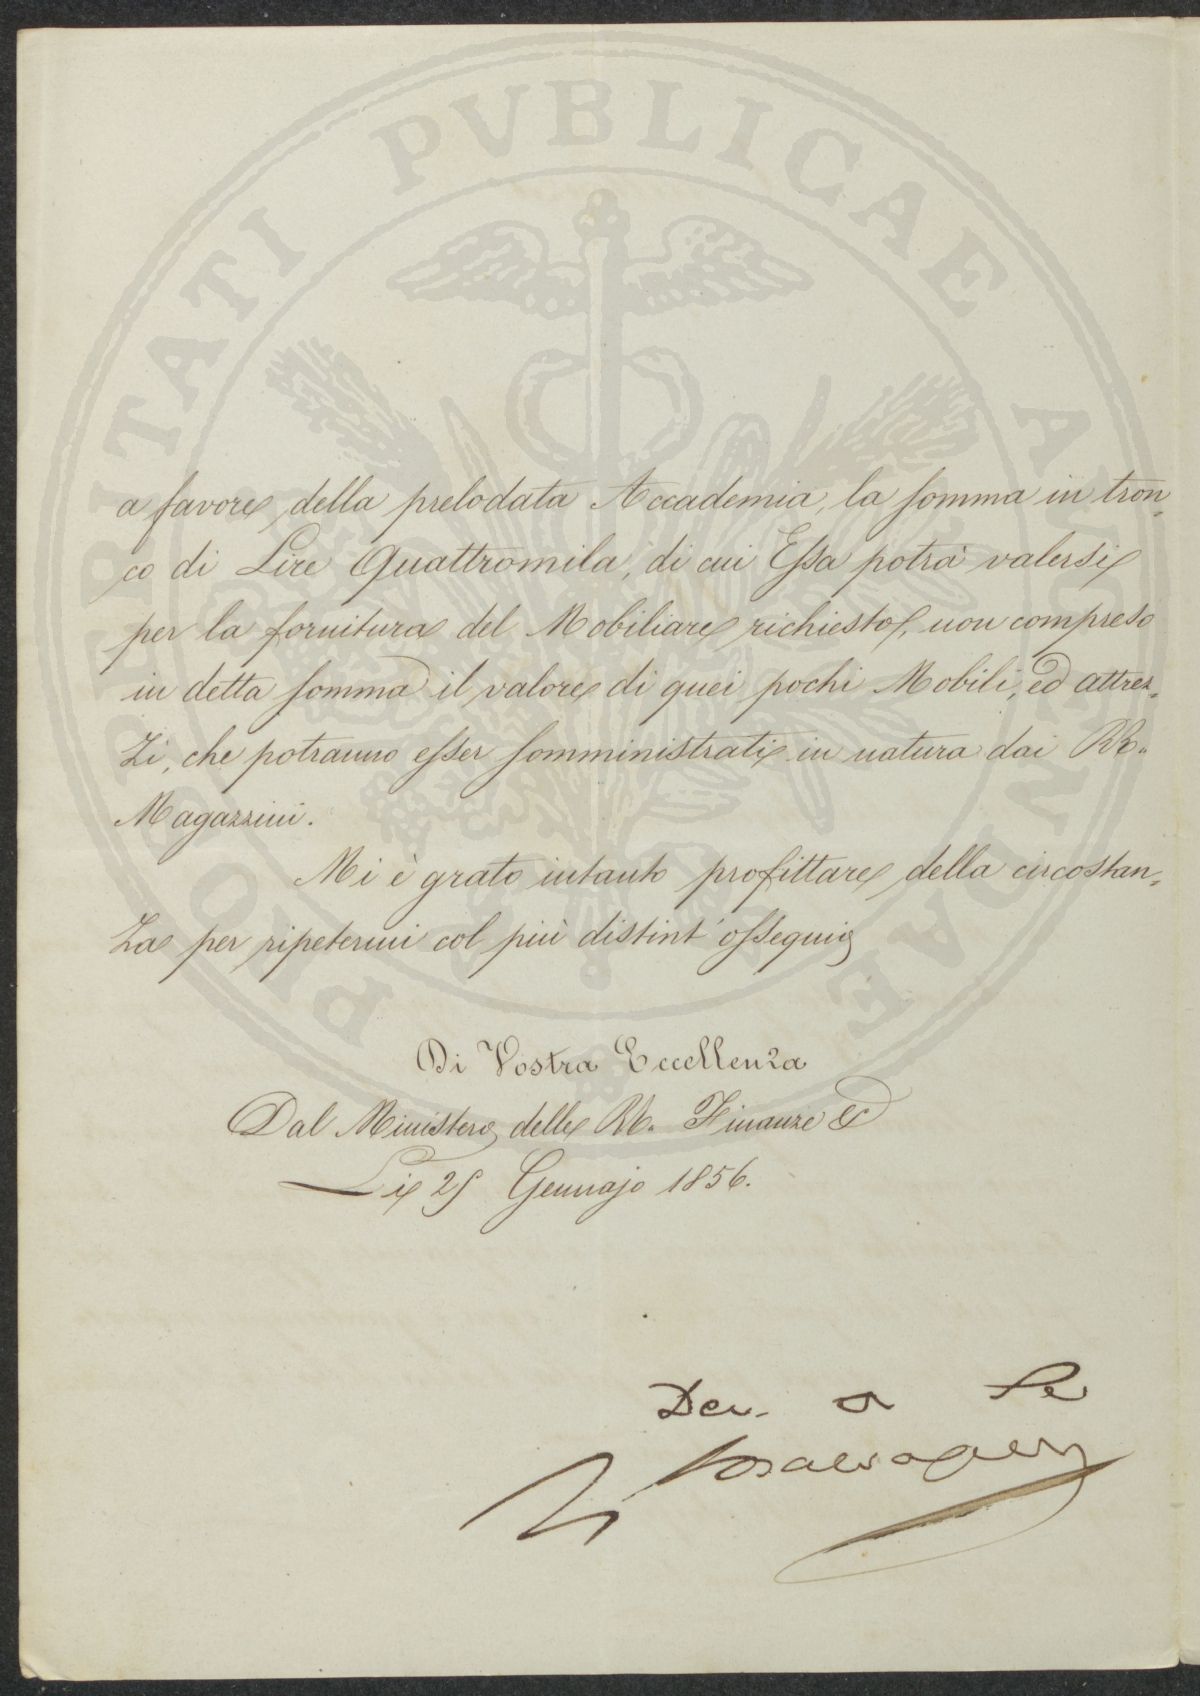 PROSPERITATI PUBLICAE AUGENDAE
a favore della prelodata Accademia, la somma in tron-
co di Lire Quattromila, di cui Essa potrà valersi
per la fornitura del Mobiliare richiesto, non compreso
in detta somma il valore di quei pochi Mobili, ed attrez-
zi, che potranno esser somministrati in natura dai RR.
Magazzini.
Mi è grato intanto profittare della circostan-
za per ripetermi col più distint' ossequio
Di Vostra Eccellenza
Dal Ministero delle RR. Finanze &c
Li 25 Gennajo 1856.